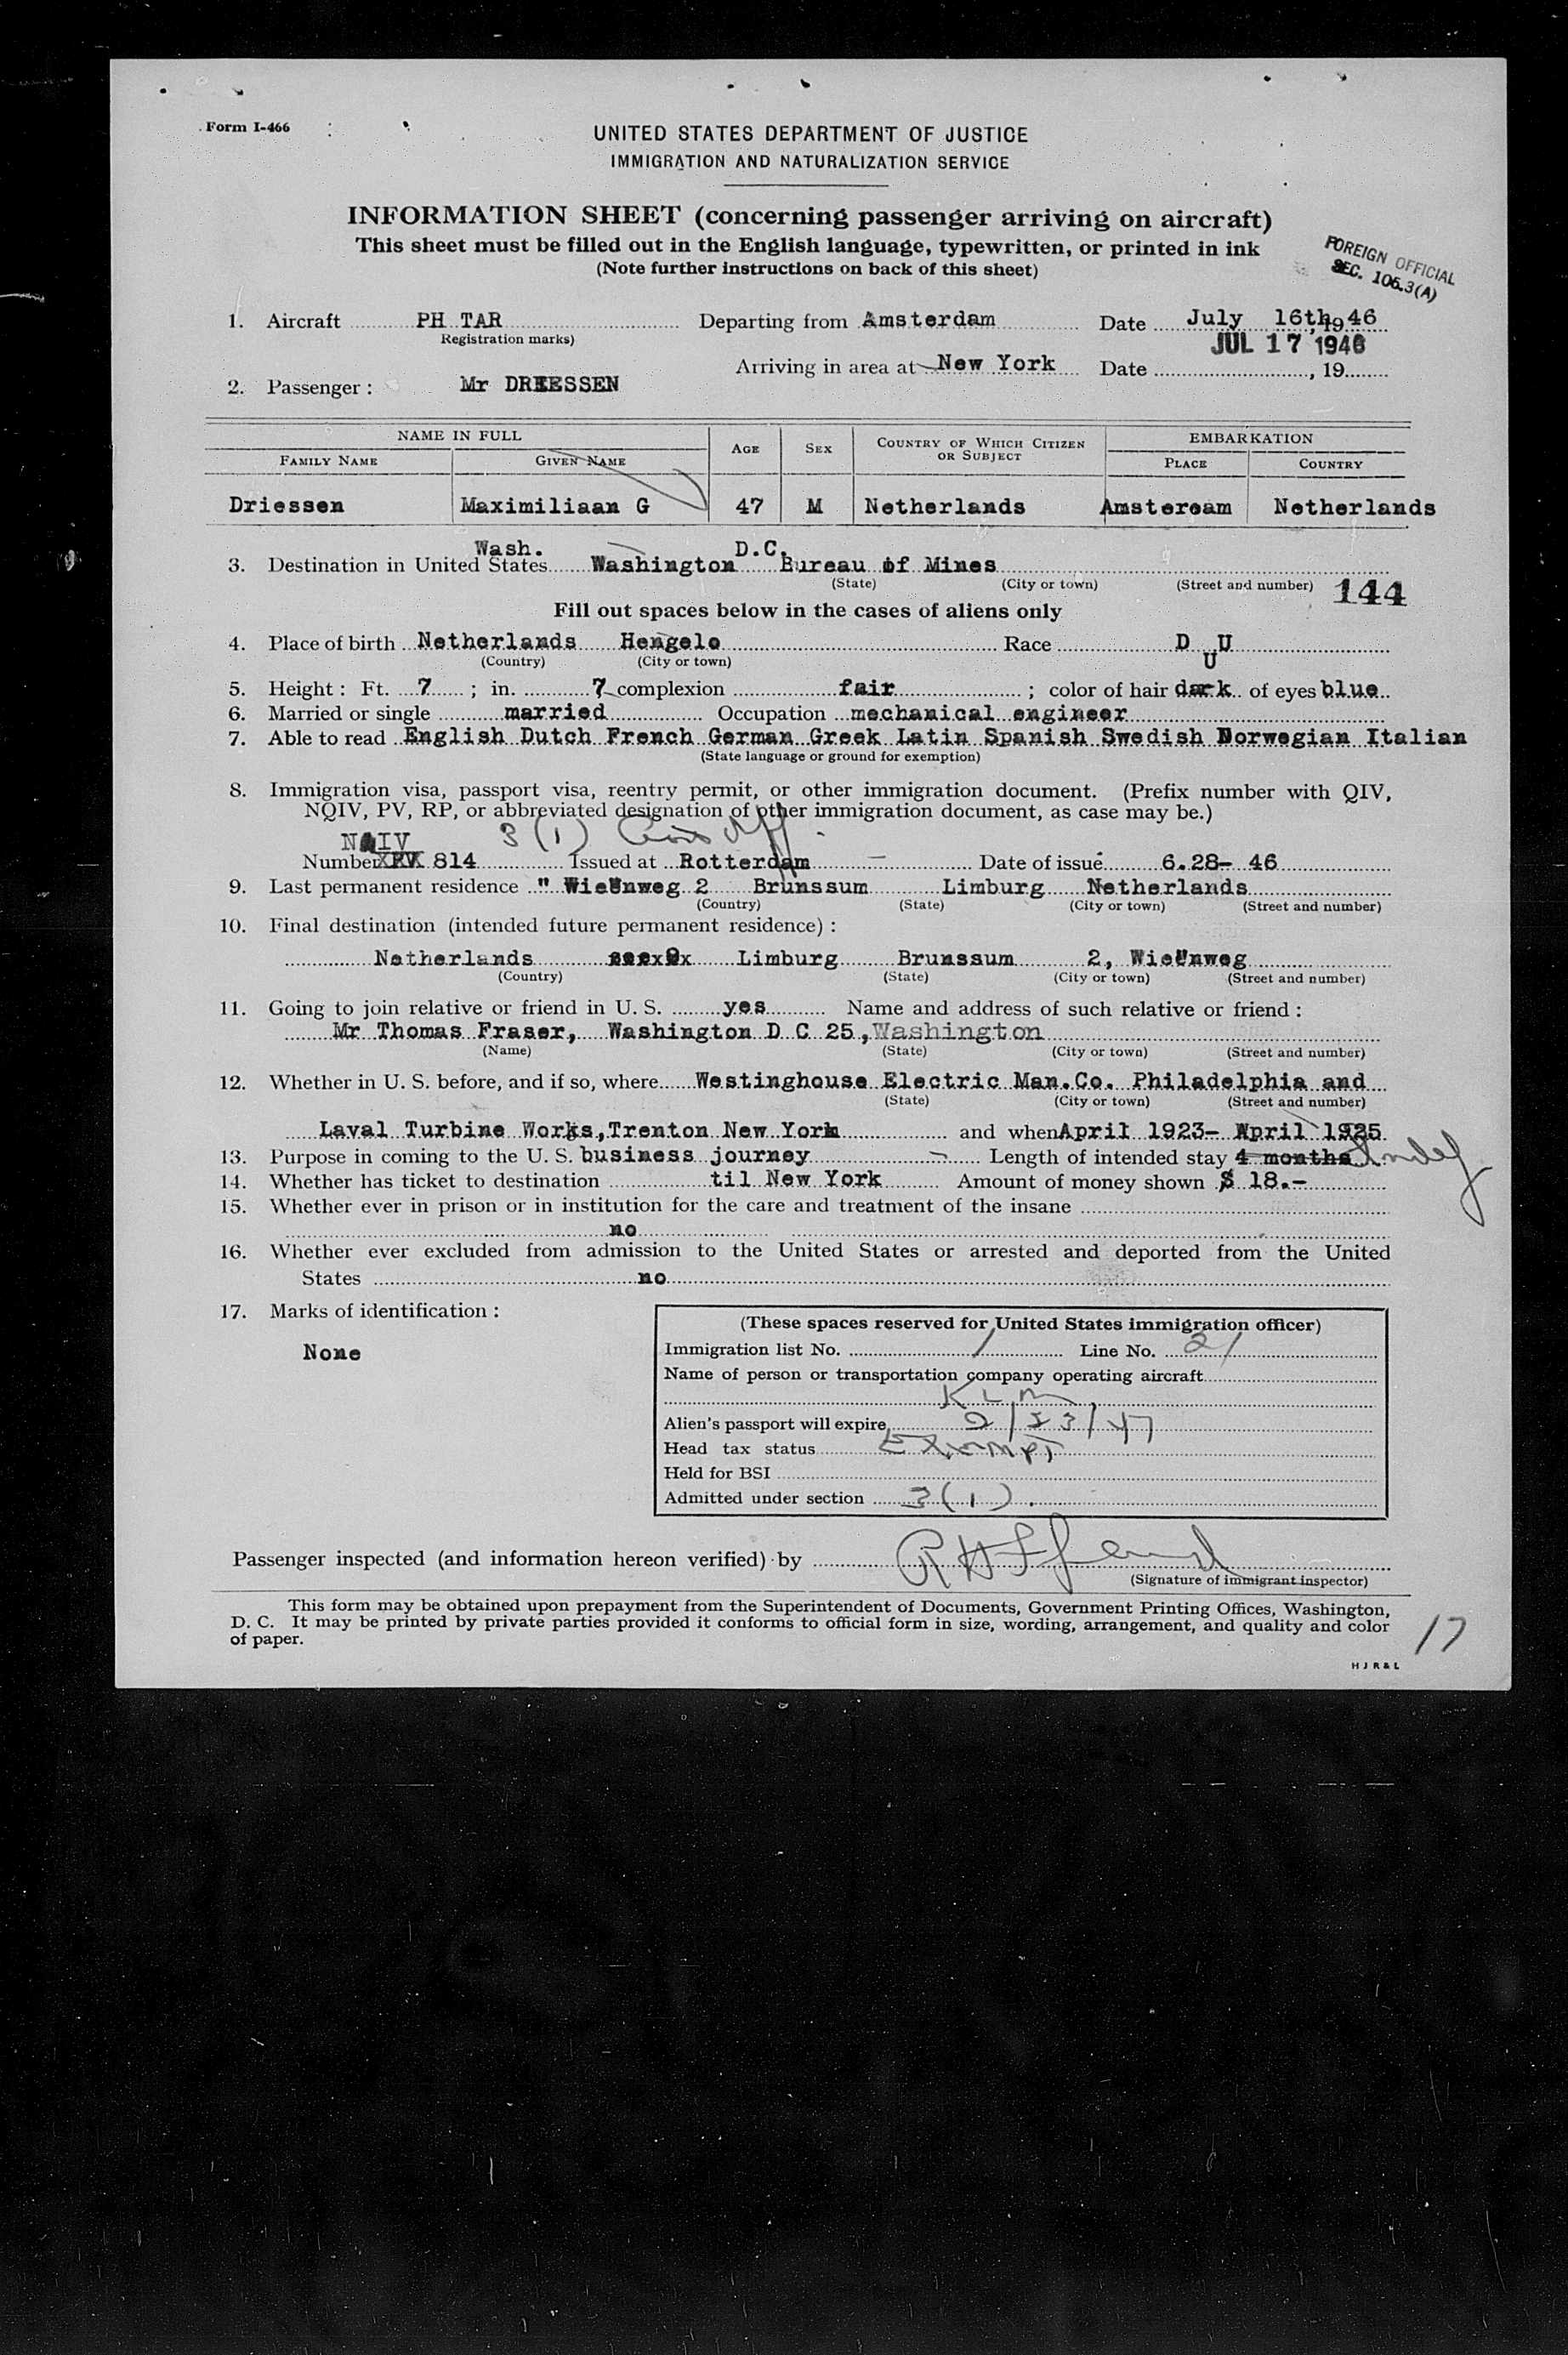 Form I-466
UNITED STATES DEPARTMENT OF JUSTICE
IMMIGRATION AND NATURALIZATION SERVICE
INFORMATION SHEET (concerning passenger arriving on aircraft)
This sheet must be filled out in the English language, typewritten, or printed in ink
(Note further instructions on back of this sheet)
FOREIGN OFFICIAL
SEC. 105.3(A)
1. Aircraft PH TAR Departing from Amsterdam Date July 16th, 1946
(Registration marks)
JUL 17 1946
Arriving in area at New York Date , 19
2. Passenger : Mr DRIESSEN
NAME IN FULL AGE SEX COUNTRY OF WHICH CITIZEN OR SUBJECT EMBARKATION
FAMILY NAME GIVEN NAME PLACE COUNTRY
Driessen Maximiliaan G 47 M Netherlands Amsteream Netherlands
Wash. D.C.
3. Destination in United States Washington Bureau of Mines
(State) (City or town) (Street and number) 144
Fill out spaces below in the cases of aliens only
4. Place of birth Netherlands Hengelo Race D U
(Country) (City or town) U
5. Height : Ft. 7 ; in. 7 complexion fair ; color of hair dark of eyes blue
6. Married or single married Occupation mechanical engineer
7. Able to read English Dutch French German Greek Latin Spanish Swedish Norwegian Italian
(State language or ground for exemption)
8. Immigration visa, passport visa, reentry permit, or other immigration document. (Prefix number with QIV,
NQIV, PV, RP, or abbreviated designation of other immigration document, as case may be.)
NQIV 3 (1)
Number 814 Issued at Rotterdam Date of issue 6.28- 46
9. Last permanent residence " Wieënweg 2 Brunssum Limburg Netherlands
(Country) (State) (City or town) (Street and number)
10. Final destination (intended future permanent residence) :
Netherlands Limburg Brunssum 2, Wieënweg
(Country) (State) (City or town) (Street and number)
11. Going to join relative or friend in U. S. yes Name and address of such relative or friend :
Mr Thomas Fraser, Washington D C 25, Washington
(Name) (State) (City or town) (Street and number)
12. Whether in U. S. before, and if so, where Westinghouse Electric Man.Co. Philadelphia and
(State) (City or town) (Street and number)
Laval Turbine Works, Trenton New York and when April 1923- April 1925
13. Purpose in coming to the U. S. business journey Length of intended stay 4 months Indef
14. Whether has ticket to destination til New York Amount of money shown $ 18.-
15. Whether ever in prison or in institution for the care and treatment of the insane
no
16. Whether ever excluded from admission to the United States or arrested and deported from the United
States no
17. Marks of identification :
None
(These spaces reserved for United States immigration officer)
Immigration list No. 1 Line No. 21
Name of person or transportation company operating aircraft
KLM
Alien's passport will expire 2/23/47
Head tax status Exempt
Held for BSI
Admitted under section 3(1).
Passenger inspected (and information hereon verified) by
(Signature of immigrant inspector)
This form may be obtained upon prepayment from the Superintendent of Documents, Government Printing Offices, Washington,
D. C. It may be printed by private parties provided it conforms to official form in size, wording, arrangement, and quality and color
of paper.
17
H J R & L